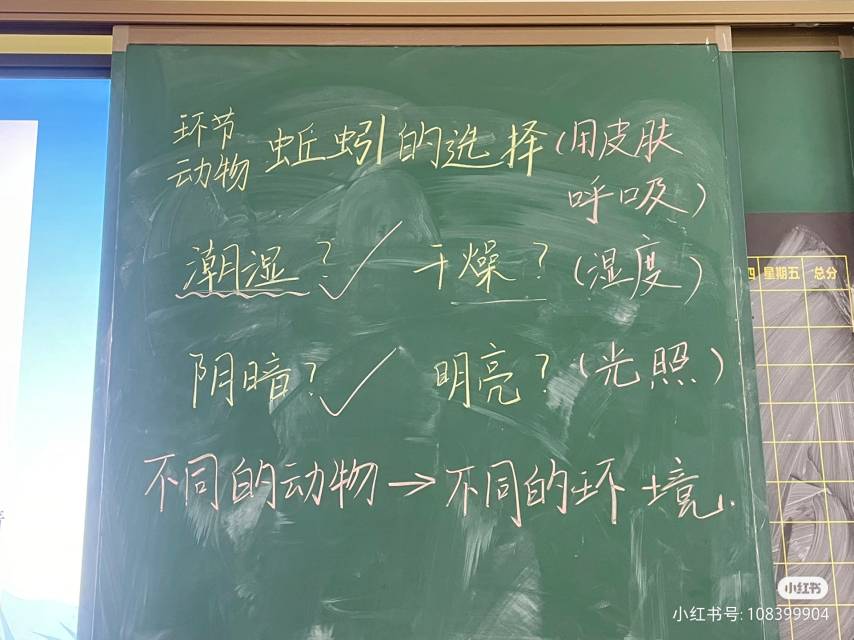 环节
动物 蚯蚓的选择(用皮肤
呼吸)
潮湿?✓ 干燥?(湿度)
阴暗?✓ 明亮?(光照)
不同的动物→不同的环境.
四 星期五 总分
小红书
小红书号: 108399904